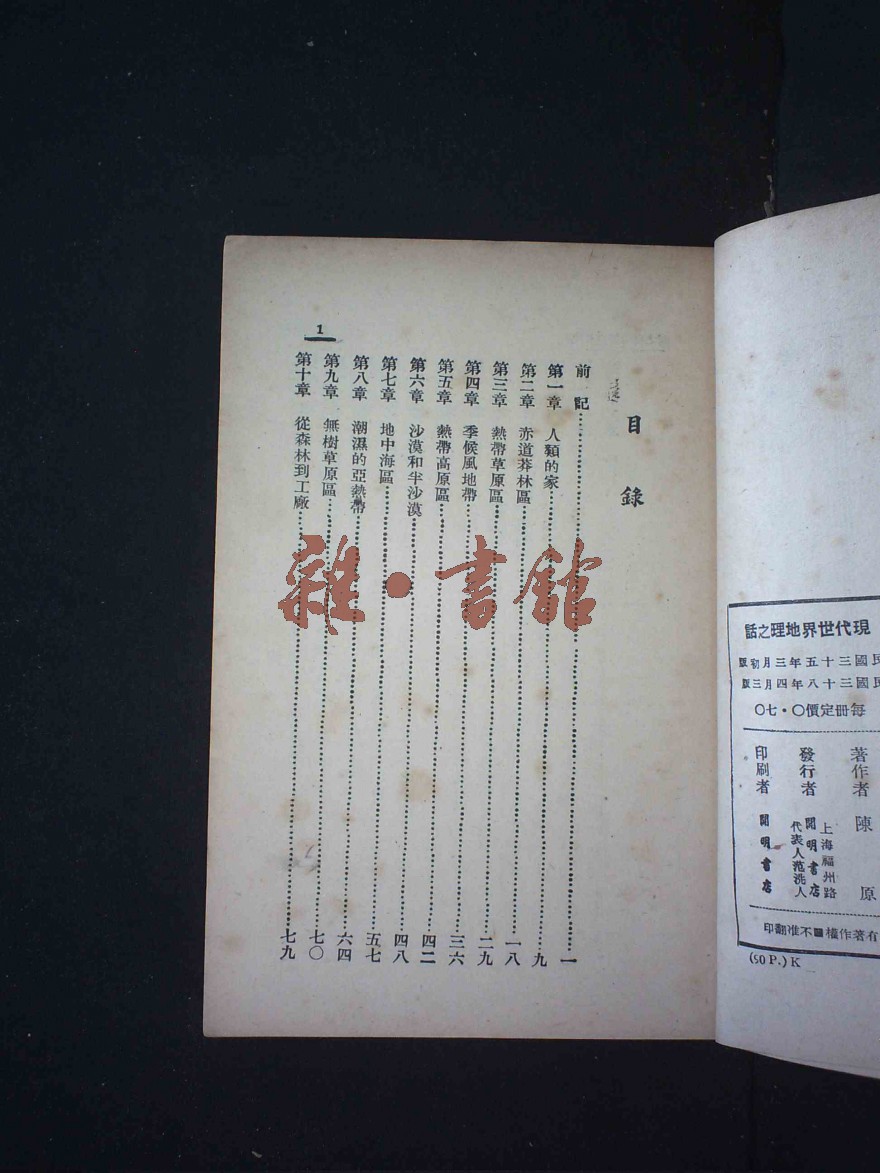 現代世界地理之話
民國三十五年三月初版
民國三十八年四月三版
每冊定價〇·七〇
著作者 陳原
發行者 上海福州路
開明書店
代表人范洗人
印刷者 開明書店
有著作權不准翻印
(90 P.) K
目錄
前記……一
第一章 人類的家……九
第二章 赤道莽林區……一八
第三章 熱帶草原區……二九
第四章 季候風地帶……三六
第五章 熱帶高原區……四二
第六章 沙漠和半沙漠……四八
第七章 地中海區……五七
第八章 潮濕的亞熱帶……六四
第九章 無樹草原區……七〇
第十章 從森林到工廠……七九
1
雜·書館